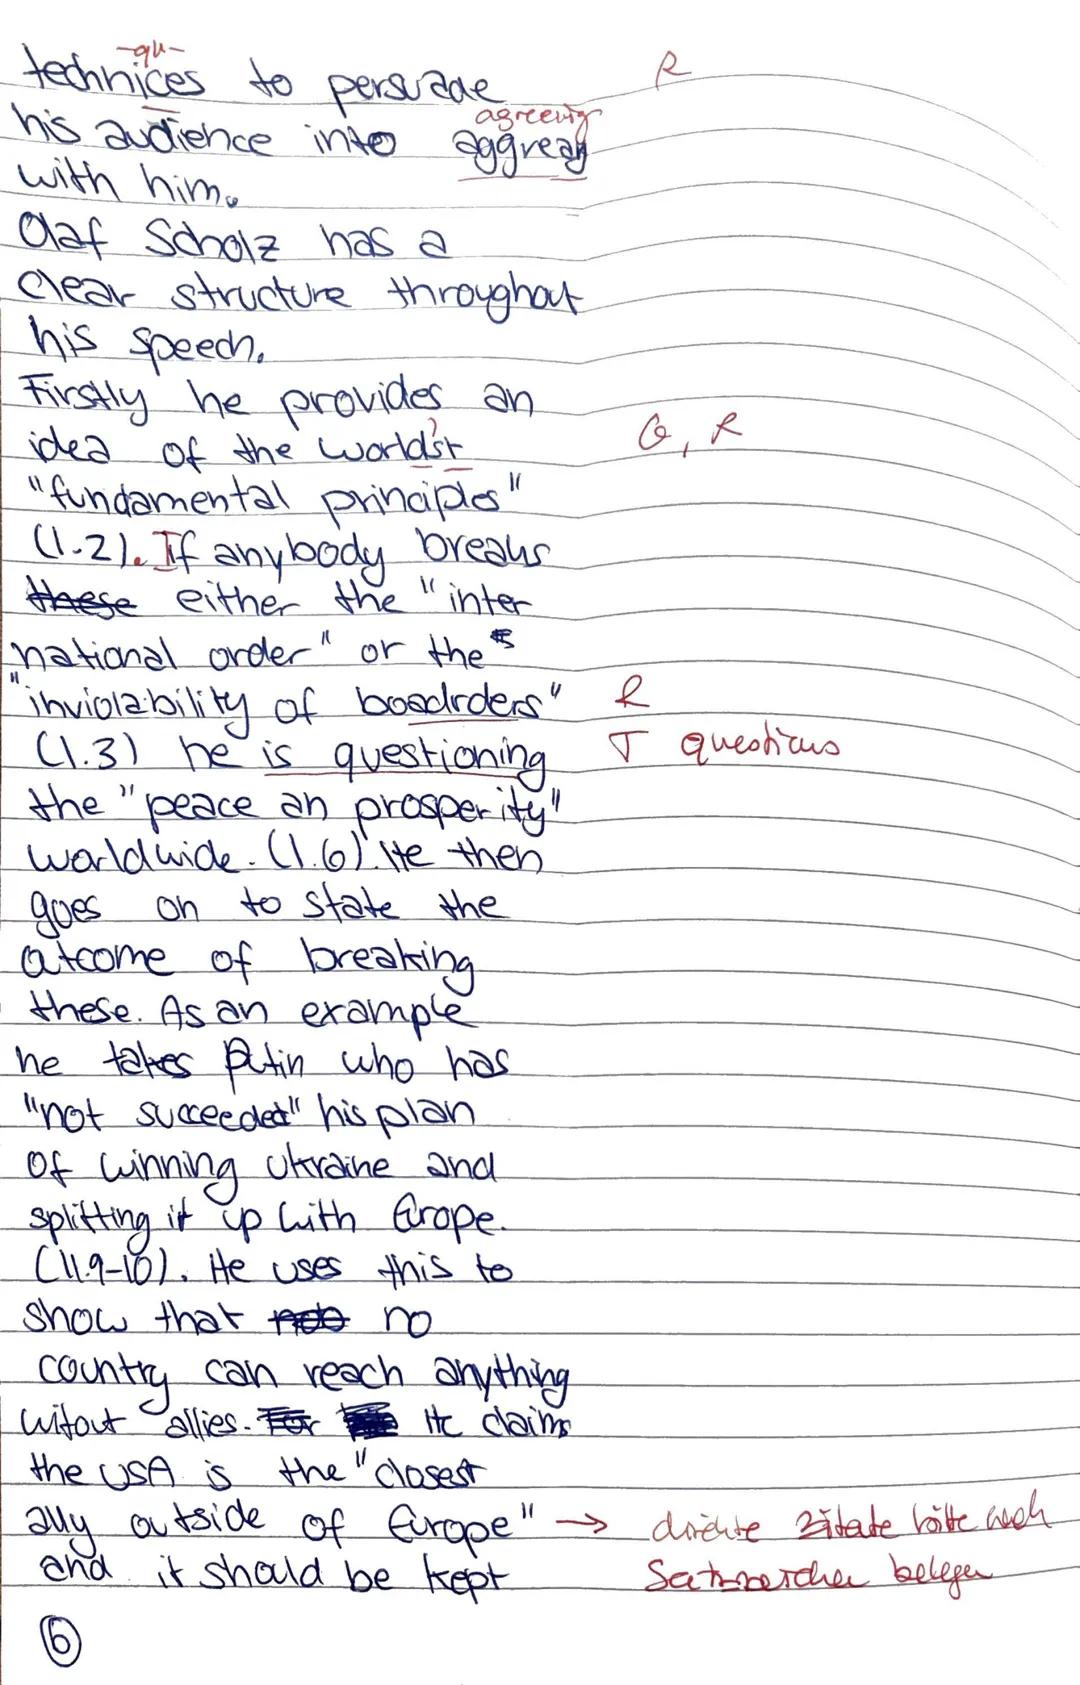 -qu-
technices to persuade R
agreeing
his audience into aggreag
with him.
Olaf Scholz has a
clear structure throughout
his speech.
Firstly he provides an
idea of the world'st G, R
"fundamental principles"
(l.2). If anybody breaks
these either the "inter
national order" or the
"inviolability of boadrders" R
(l.3) he is questioning T questions
the "peace an prosperity"
worldwide. (l.6). He then
goes on to state the
atcome of breaking
these. As an example
he takes Putin who has
"not succeeded" his plan
of winning Ukraine and
splitting it up with Europe.
(ll.9-10). He uses this to
show that no
country can reach anything
witout allies. For He claims
the USA is the "closest
ally outside of Europe" → direkte Zitate bitte nach
and it should be kept Satzzeichen belegen
6